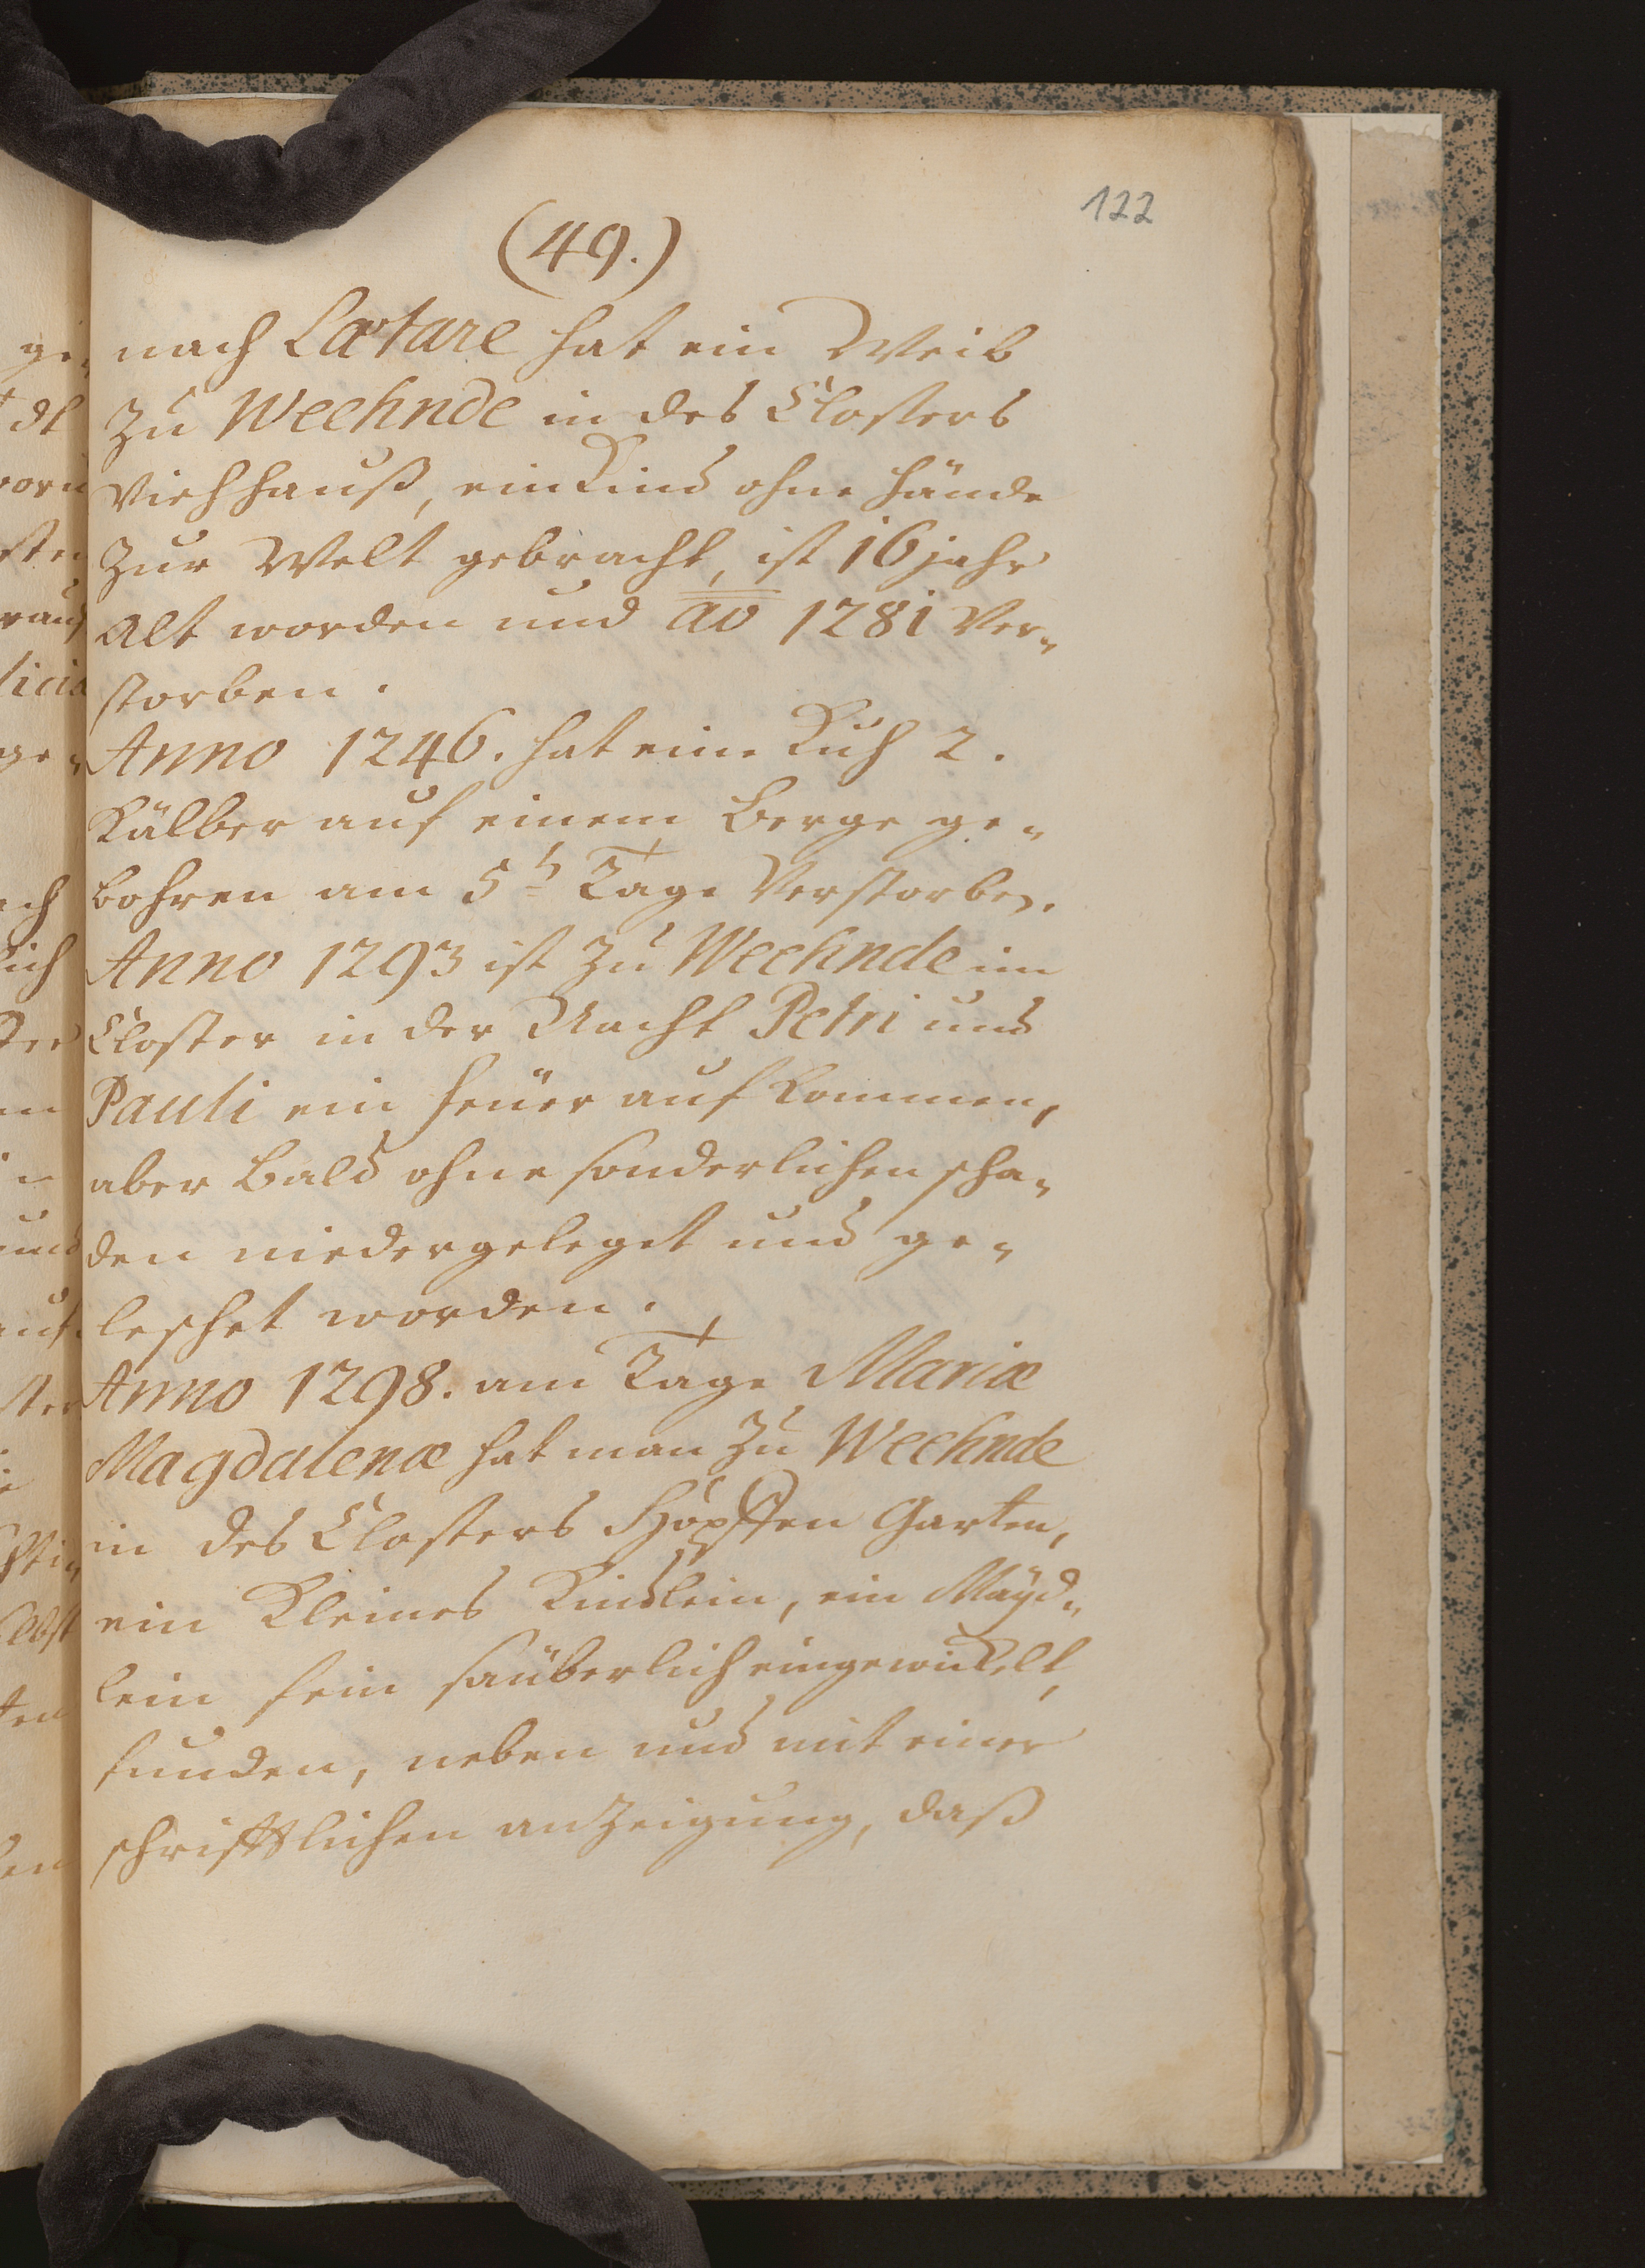 122
(49.)
nach Lætare hat ein Weib
zu Weehnde in des Closters
Viehhauß, ein Kind ohne hände
zur Welt gebracht, ist 16 jahr
Alt worden und ao 1281 Ver-
storben.
Anno 1246. hat eine Kuh 2.
Kälber auf einem Berge ge-
bohren am 5t Tage Verstorben.
Anno 1293 ist zu Weehnde im
Closter in der Nacht Petri und
Pauli ein feüer auf kommen,
aber bald ohne sonderlichen scha-
den niedergeleget und ge-
leschet worden.
Anno 1298. am Tage Mariæ
Magdalenæ hat man zu Weehnde
in des Closters Höpffen Garten,
ein Kleines Kindlein, ein Mäyd-
lein fein säüberlich eingewickelt,
funden, neben und mit einer
schrifftlichen anzeigung, daß